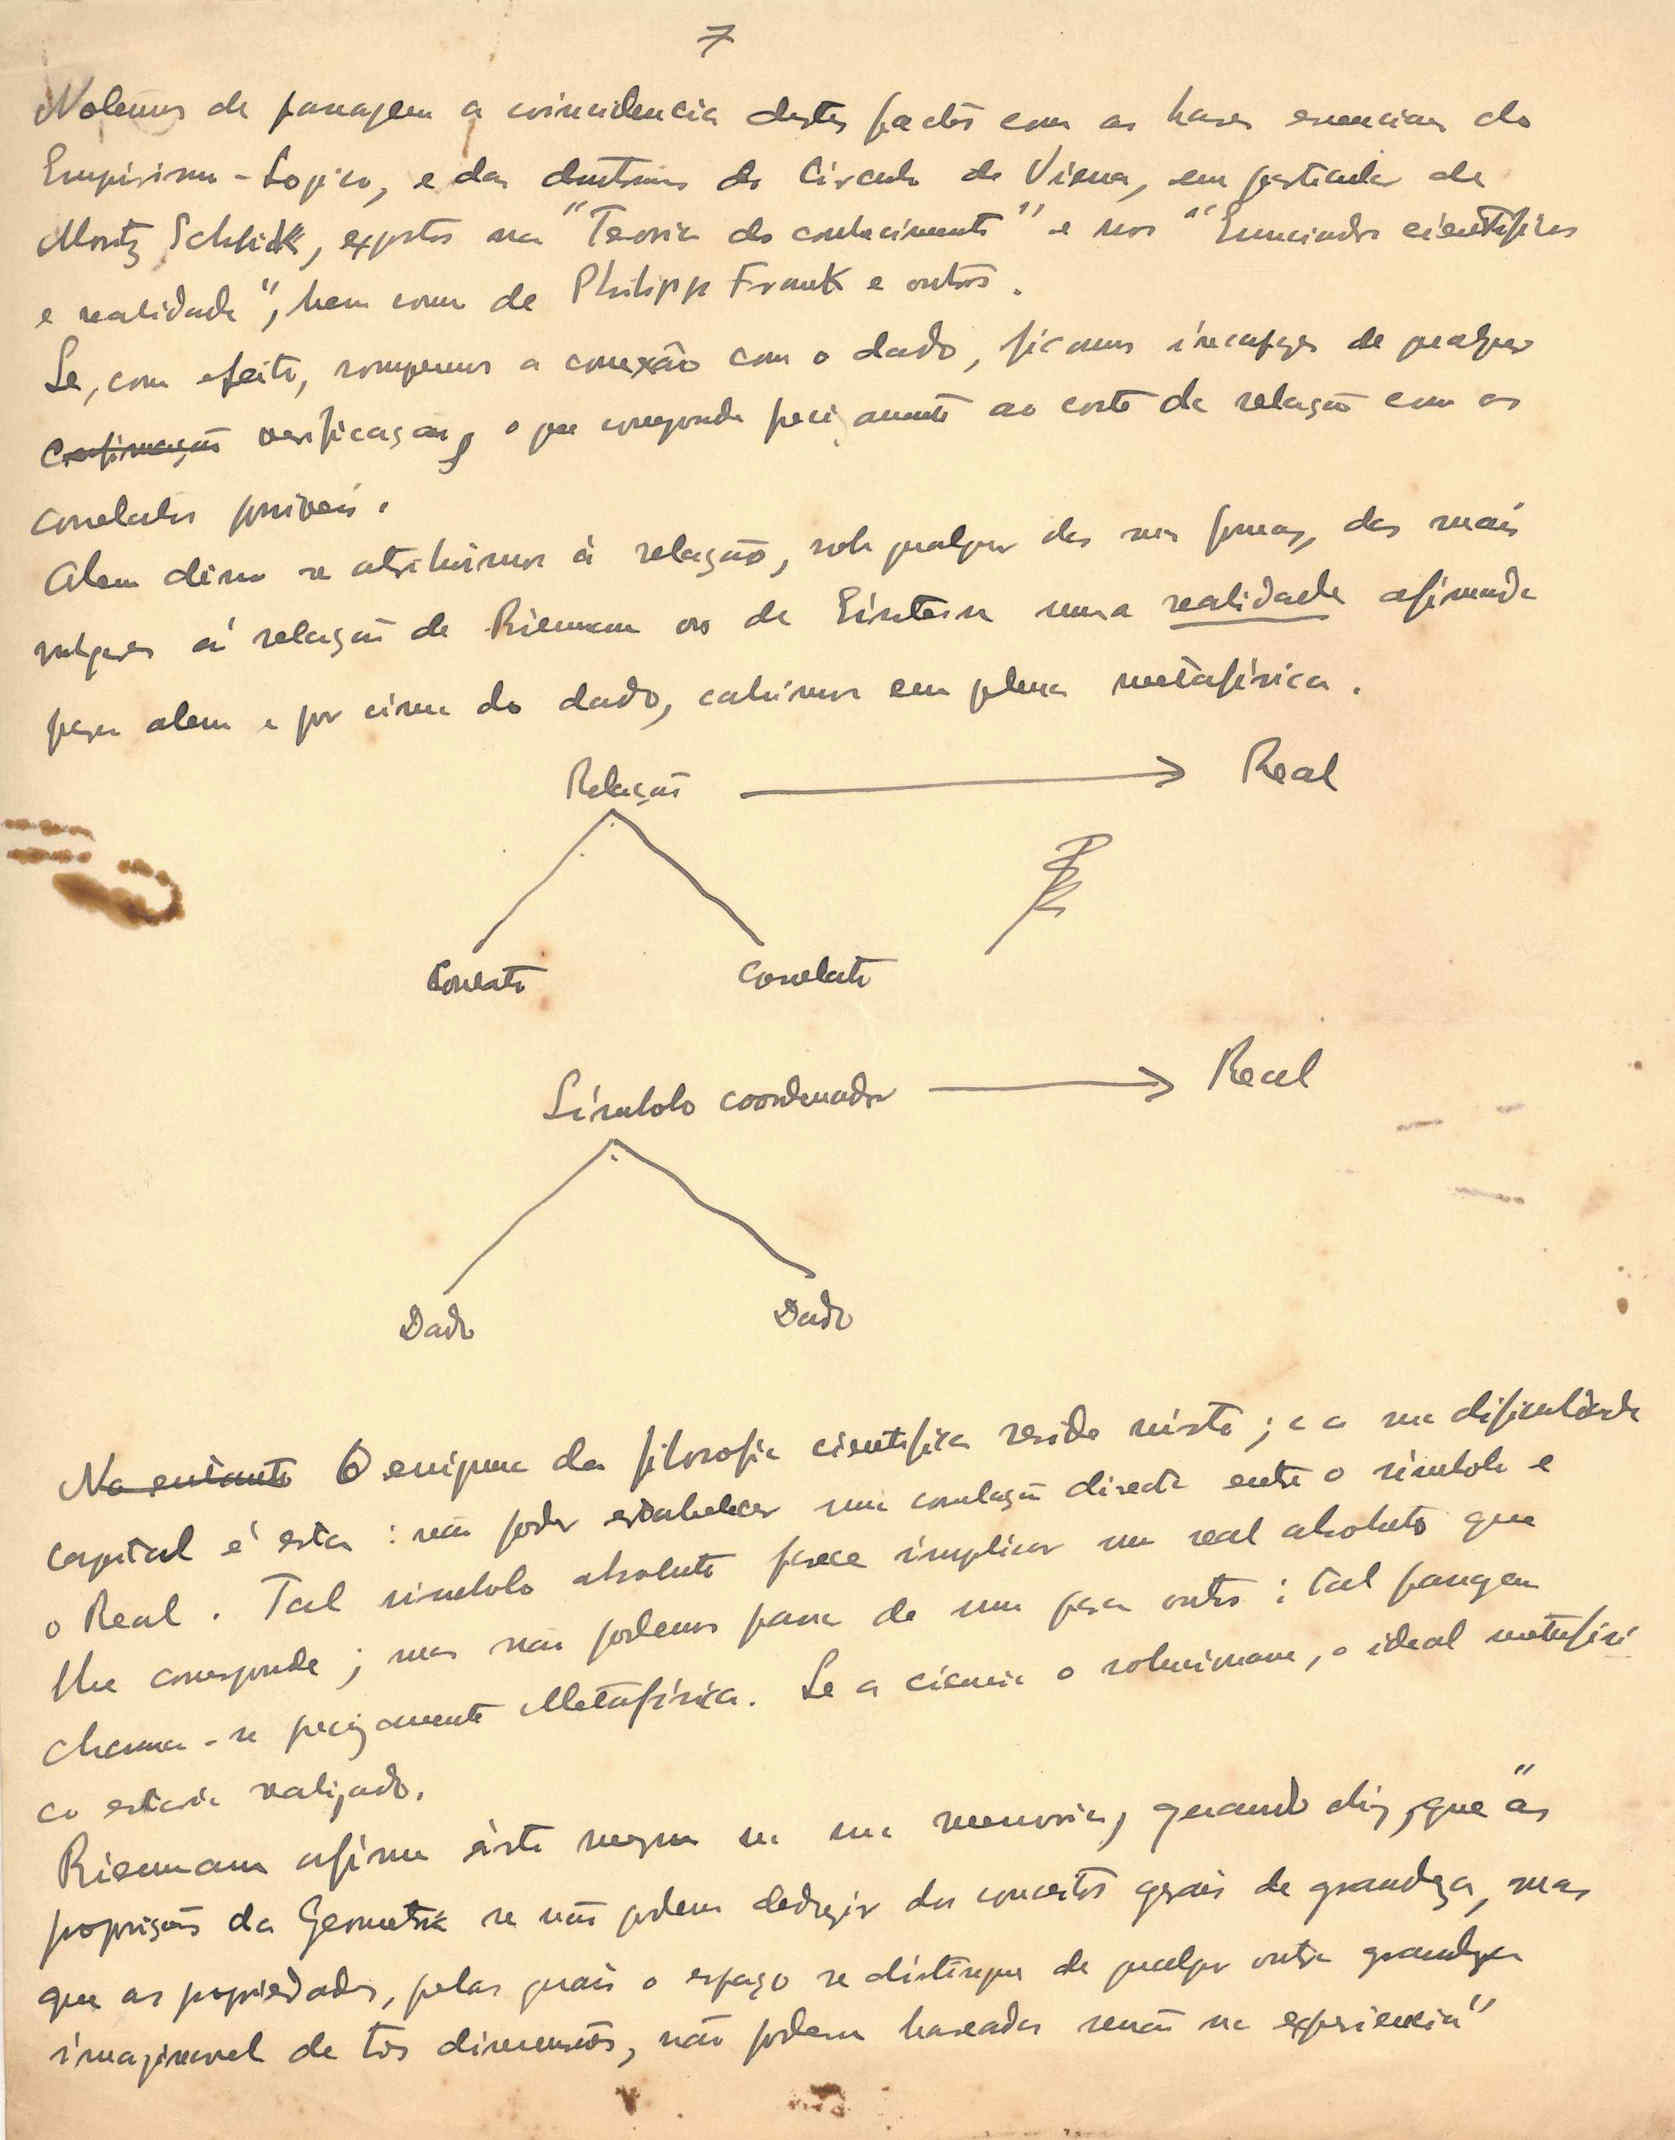 7
Notemos de passagem a coincidencia destes factos com as bases essenciais do
Empirismo-Logico, e das doutrinas do Circulo de Viena, em particular de
Moritz Schlick, expostas na "Teoria do conhecimento" e nos "Enunciados cientificos
e realidade", bem como de Philipp Frank e outros.
Se, com efeito, rompemos a conexão com o dado, ficamos incapazes de qualquer
Confirmação verificação, o que corresponde precizamente ao corte da relação com os
correlatos possiveis.
Alem disso se atribuimos á relação, sob qualquer das suas formas, das mais
vulgares á relação de Riemann ou de Einstein uma realidade afirmada
para alem e por cima do dado, cahimos em plena metafísica.
Relação Real
Correlato Correlato
Símbolo coordenador Real
Dado Dado
No entanto O enigma da filosofia cientifica reside nisto; e a sua dificuldade
capital é esta: não poder estabelecer uma correlação directa entre o simbolo e
o Real. Tal simbolo absoluto parece implicar um real absoluto que
lhe corresponde; mas não podemos passar de um para outro: tal passagem
chama-se precizamente Metafísica. Se a ciencia o solucionasse, o ideal metafísi
co estaria realizado.
Riemann afirma isto mesmo na sua memoria, quando diz, que "as
proposições da Geometria se não podem deduzir dos conceitos gerais de grandeza, mas
que as propriedades, pelas quais o espaço se distingue de qualquer outra grandeza
imaginavel de tres dimensões, não podem baseadas senão na experiencia"